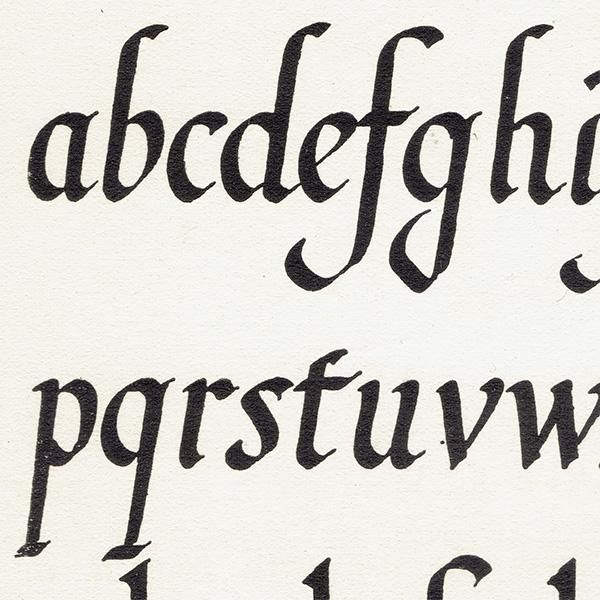 abcdefghi
pqrstuvw